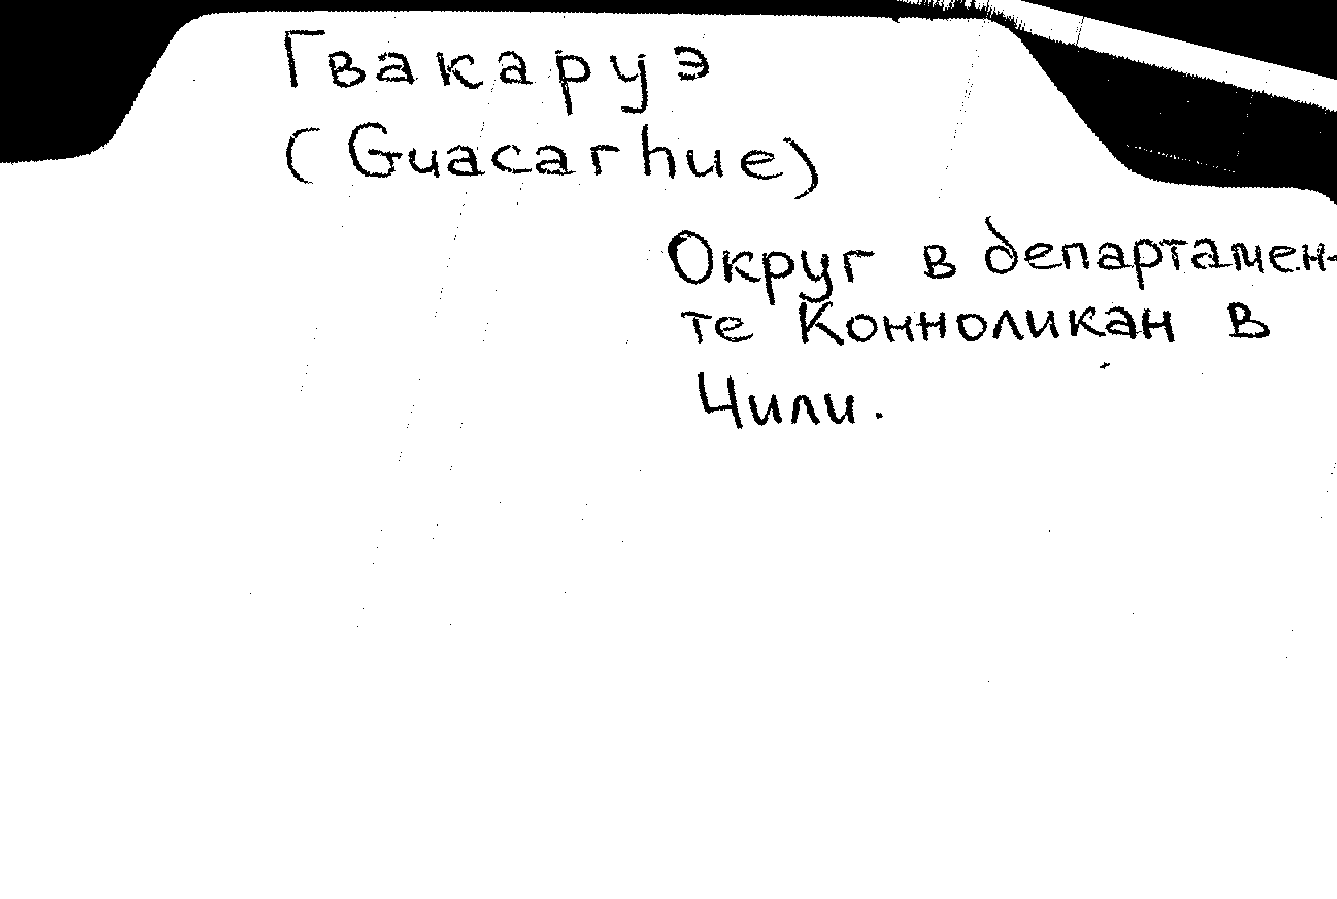 Гвакаруэ
(Guacarhue)
Округ в департамен-
те Конноликан в
Чили.